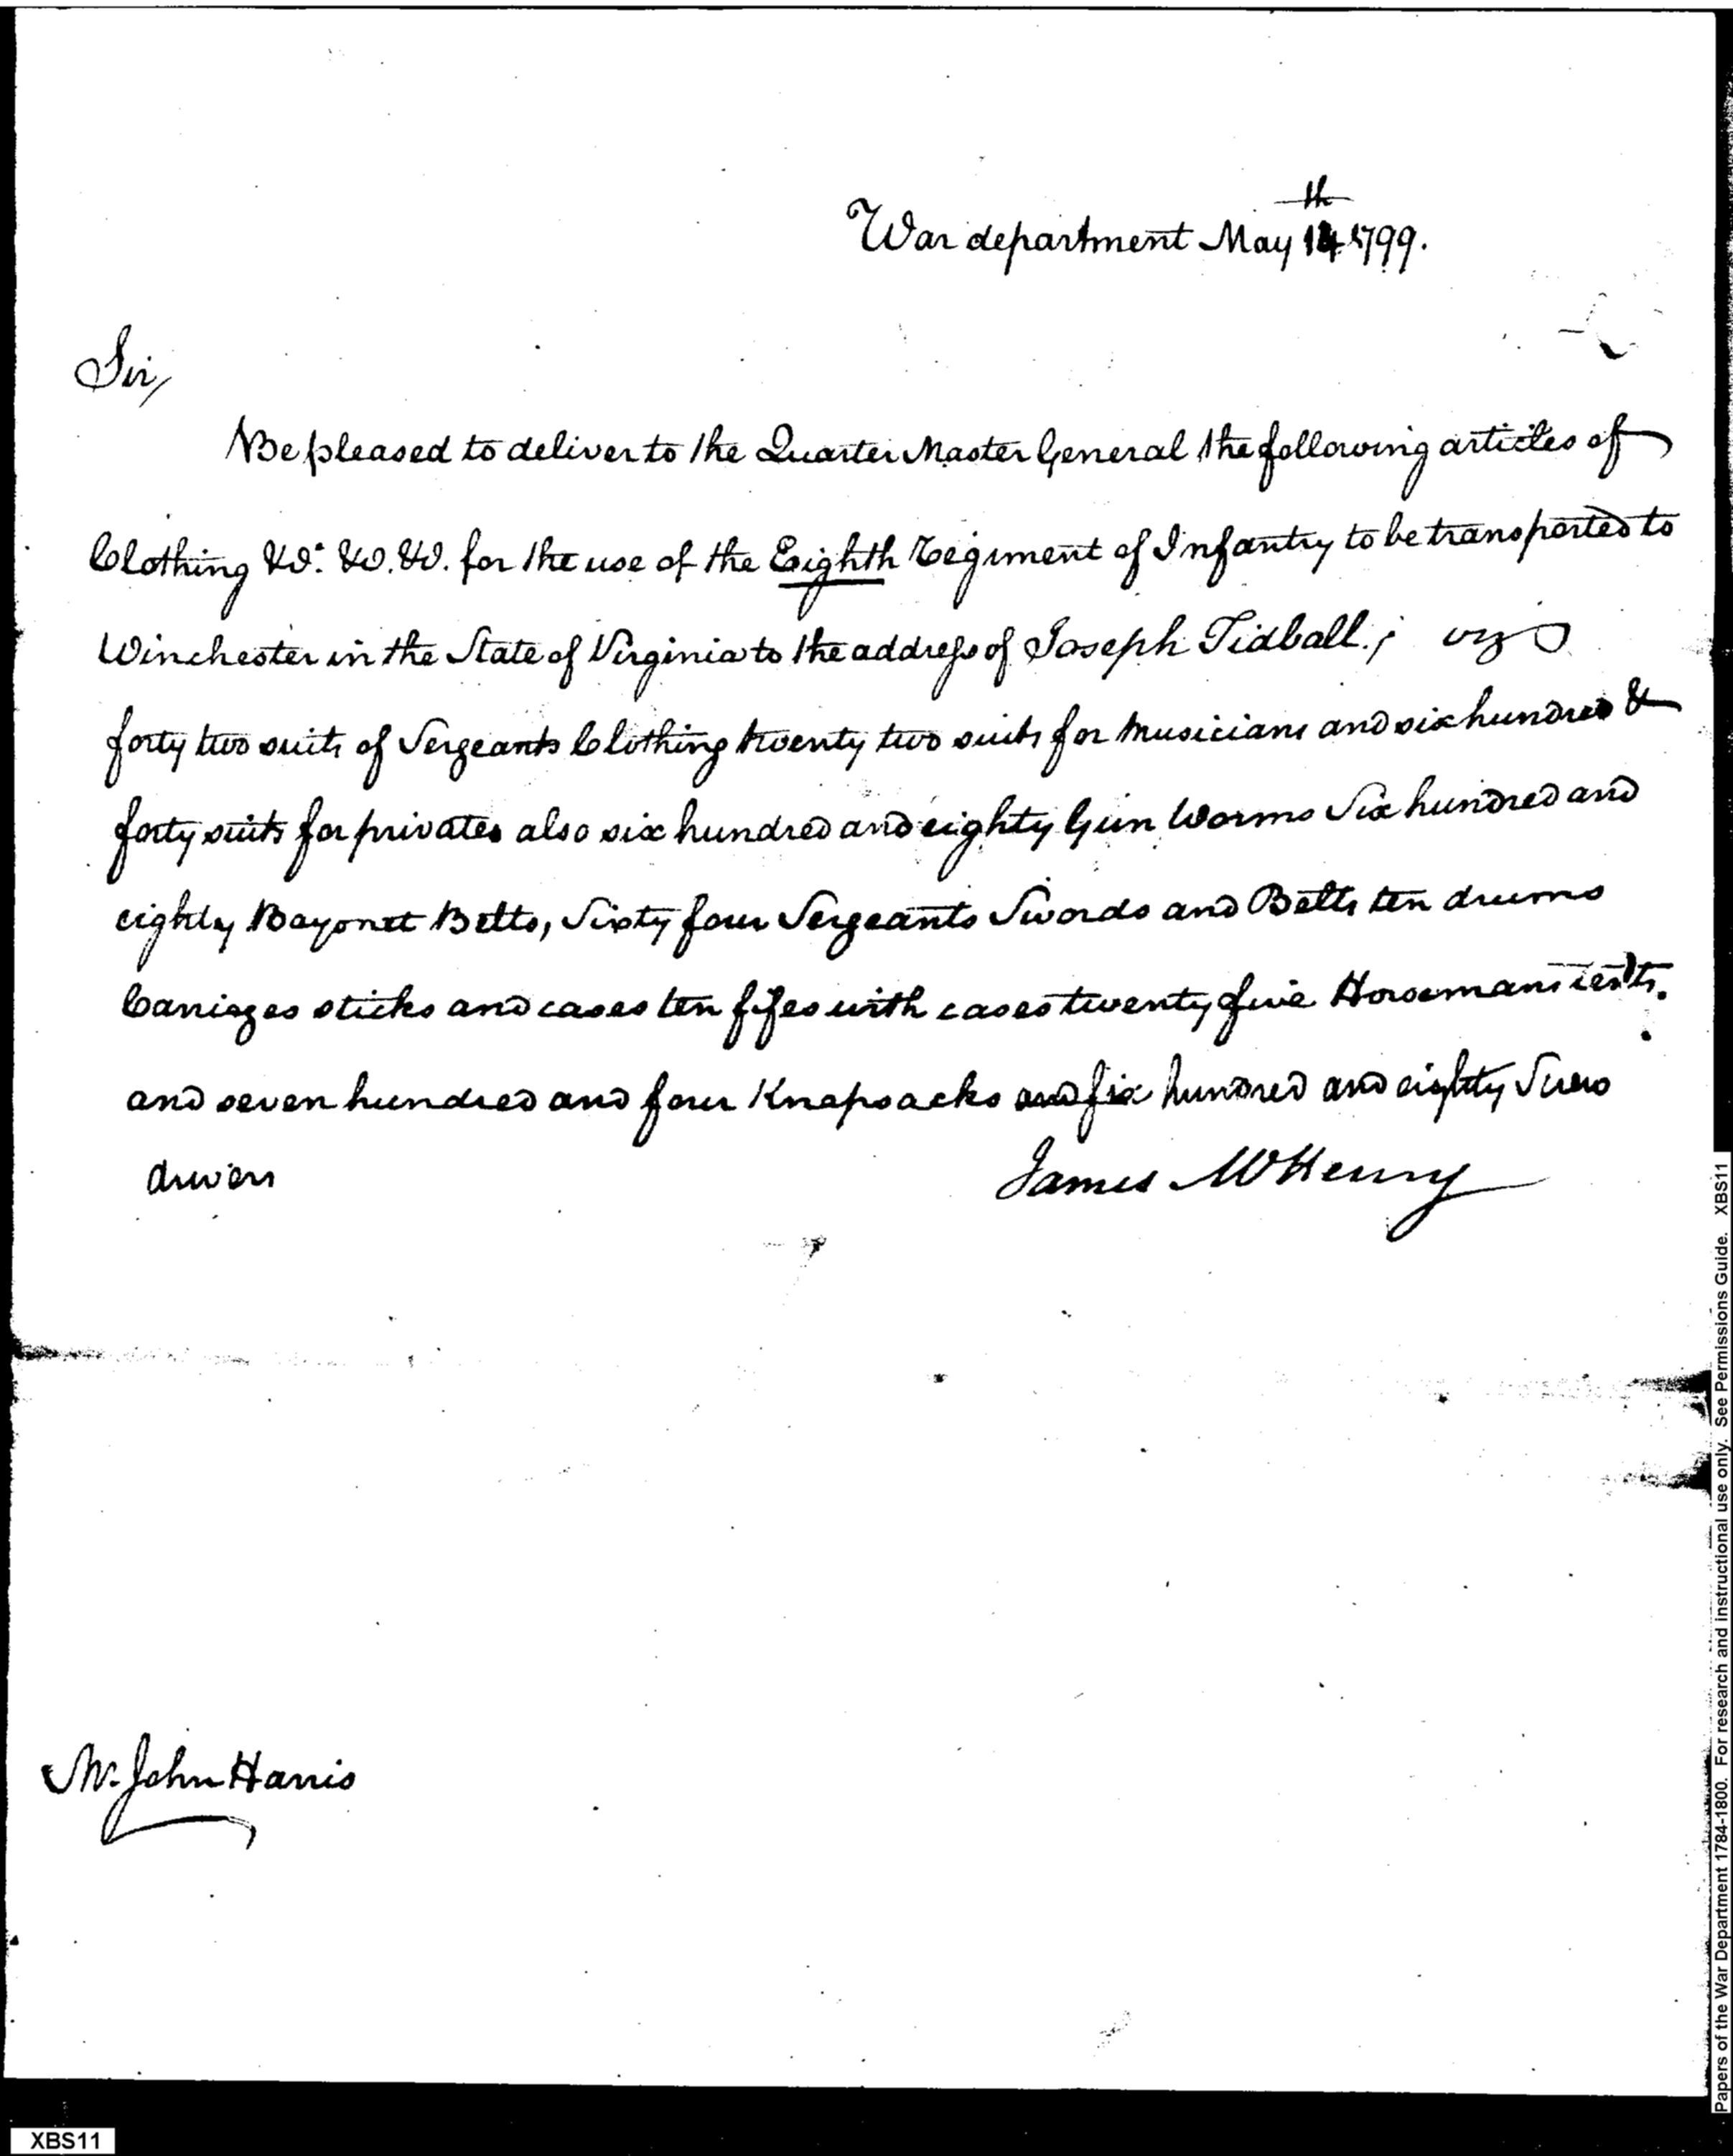 War department May 14th 1799.
Sir,
Be pleased to deliver to the Quarter Master General the following articles of
Clothing &c. &c. &c. for the use of the Eighth Regiment of Infantry to be transported to
Winchester in the State of Virginia to the address of Joseph Tidball; viz
forty two suits of Sergeants Clothing twenty two suits for Musicians and six hundred &
forty suits for privates also six hundred and eighty Gun Worms Six hundred and
eighty Bayonet Belts, Sixty four Sergeants Swords and Belts ten drums
Carriages sticks and cases ten fifes with cases twenty five Horsemans tents.
and seven hundred and four Knapsacks and six hundred and eighty Screw
drivers
James McHenry
Mr. John Harris
XBS11
Papers of the War Department 1784-1800. For research and instructional use only. See Permissions Guide. XBS11